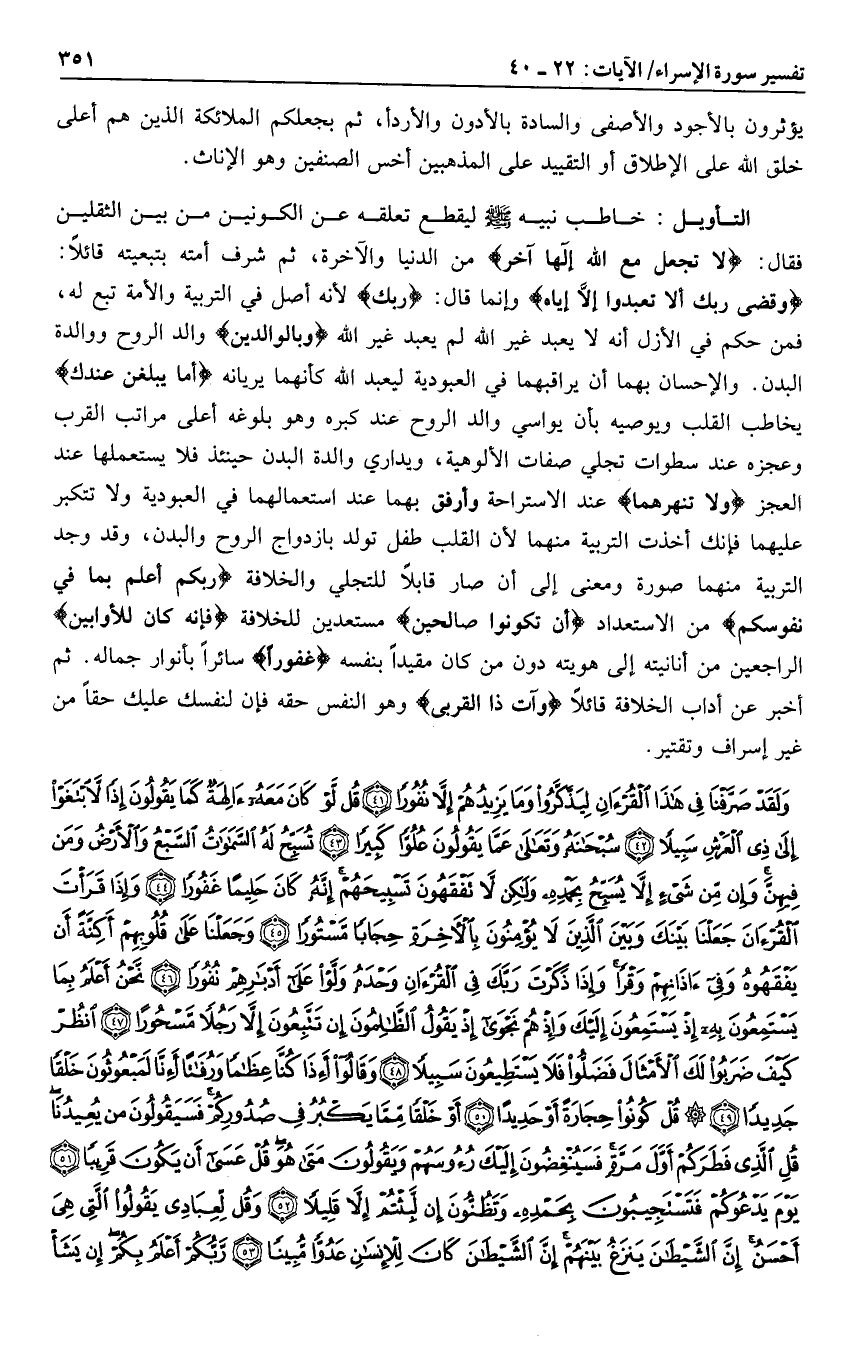 تفسير سورة الإسراء/ الآيات: ٢٢ ـ ٤٠ ٣٥١
يؤثرون بالأجود والأصفى والسادة بالأدون والأردأ، ثم بجعلكم الملائكة الذين هم أعلى
خلق الله على الإطلاق أو التقييد على المذهبين أخس الصنفين وهو الإناث.
التأويل: خاطب نبيه ﷺ ليقطع تعلقه عن الكونين من بين الثقلين
فقال: ﴿لا تجعل مع الله إلٰهاً آخر﴾ من الدنيا والآخرة، ثم شرف أمته بتبعيته قائلاً:
﴿وقضى ربك ألا تعبدوا إلاَّ إياه﴾ وإنما قال: ﴿ربك﴾ لأنه أصل في التربية والأمة تبع له،
فمن حكم في الأزل أنه لا يعبد غير الله لم يعبد غير الله ﴿وبالوالدين﴾ والد الروح ووالدة
البدن. والإحسان بهما أن يراقبهما في العبودية ليعبد الله كأنهما يريانه ﴿أما يبلغن عندك﴾
يخاطب القلب ويوصيه بأن يواسي والد الروح عند كبره وهو بلوغه أعلى مراتب القرب
وعجزه عند سطوات تجلي صفات الألوهية، ويداري والدة البدن حينئذ فلا يستعملها عند
العجز ﴿ولا تنهرهما﴾ عند الاستراحة وأرفق بهما عند استعمالهما في العبودية ولا تتكبر
عليهما فإنك أخذت التربية منهما لأن القلب طفل تولد بازدواج الروح والبدن، وقد وجد
التربية منهما صورة ومعنى إلى أن صار قابلاً للتجلي والخلافة ﴿ربكم أعلم بما في
نفوسكم﴾ من الاستعداد ﴿أن تكونوا صالحين﴾ مستعدين للخلافة ﴿فإنه كان للأوابين﴾
الراجعين من أنانيته إلى هويته دون من كان مقيداً بنفسه ﴿غفوراً﴾ سائراً بأنوار جماله. ثم
أخبر عن أداب الخلافة قائلاً ﴿وآت ذا القربى﴾ وهو النفس حقه فإن لنفسك عليك حقاً من
غير إسراف وتقتير.
وَلَقَدْ صَرَّفْنَا فِي هَٰذَا ٱلْقُرْءَانِ لِيَذَّكَّرُوا۟ وَمَا يَزِيدُهُمْ إِلَّا نُفُورًا ﴿٤١﴾ قُل لَّوْ كَانَ مَعَهُۥٓ ءَالِهَةٌ كَمَا يَقُولُونَ إِذًا لَّٱبْتَغَوْا۟
إِلَىٰ ذِى ٱلْعَرْشِ سَبِيلًا ﴿٤٢﴾ سُبْحَٰنَهُۥ وَتَعَٰلَىٰ عَمَّا يَقُولُونَ عُلُوًّا كَبِيرًا ﴿٤٣﴾ تُسَبِّحُ لَهُ ٱلسَّمَٰوَٰتُ ٱلسَّبْعُ وَٱلْأَرْضُ وَمَن
فِيهِنَّ ۚ وَإِن مِّن شَىْءٍ إِلَّا يُسَبِّحُ بِحَمْدِهِۦ وَلَٰكِن لَّا تَفْقَهُونَ تَسْبِيحَهُمْ ۗ إِنَّهُۥ كَانَ حَلِيمًا غَفُورًا ﴿٤٤﴾ وَإِذَا قَرَأْتَ
ٱلْقُرْءَانَ جَعَلْنَا بَيْنَكَ وَبَيْنَ ٱلَّذِينَ لَا يُؤْمِنُونَ بِٱلْءَاخِرَةِ حِجَابًا مَّسْتُورًا ﴿٤٥﴾ وَجَعَلْنَا عَلَىٰ قُلُوبِهِمْ أَكِنَّةً أَن
يَفْقَهُوهُ وَفِىٓ ءَاذَانِهِمْ وَقْرًا ۚ وَإِذَا ذَكَرْتَ رَبَّكَ فِى ٱلْقُرْءَانِ وَحْدَهُۥ وَلَّوْا۟ عَلَىٰٓ أَدْبَٰرِهِمْ نُفُورًا ﴿٤٦﴾ نَّحْنُ أَعْلَمُ بِمَا
يَسْتَمِعُونَ بِهِۦٓ إِذْ يَسْتَمِعُونَ إِلَيْكَ وَإِذْ هُمْ نَجْوَىٰٓ إِذْ يَقُولُ ٱلظَّٰلِمُونَ إِن تَتَّبِعُونَ إِلَّا رَجُلًا مَّسْحُورًا ﴿٤٧﴾ ٱنظُرْ
كَيْفَ ضَرَبُوا۟ لَكَ ٱلْأَمْثَالَ فَضَلُّوا۟ فَلَا يَسْتَطِيعُونَ سَبِيلًا ﴿٤٨﴾ وَقَالُوٓا۟ أَءِذَا كُنَّا عِظَٰمًا وَرُفَٰتًا أَءِنَّا لَمَبْعُوثُونَ خَلْقًا
جَدِيدًا ﴿٤٩﴾ ۞ قُلْ كُونُوا۟ حِجَارَةً أَوْ حَدِيدًا ﴿٥٠﴾ أَوْ خَلْقًا مِّمَّا يَكْبُرُ فِى صُدُورِكُمْ ۚ فَسَيَقُولُونَ مَن يُعِيدُنَا ۖ
قُلِ ٱلَّذِى فَطَرَكُمْ أَوَّلَ مَرَّةٍ ۚ فَسَيُنْغِضُونَ إِلَيْكَ رُءُوسَهُمْ وَيَقُولُونَ مَتَىٰ هُوَ ۖ قُلْ عَسَىٰٓ أَن يَكُونَ قَرِيبًا ﴿٥١﴾
يَوْمَ يَدْعُوكُمْ فَتَسْتَجِيبُونَ بِحَمْدِهِۦ وَتَظُنُّونَ إِن لَّبِثْتُمْ إِلَّا قَلِيلًا ﴿٥٢﴾ وَقُل لِّعِبَادِى يَقُولُوا۟ ٱلَّتِى هِىَ
أَحْسَنُ ۚ إِنَّ ٱلشَّيْطَٰنَ يَنزَغُ بَيْنَهُمْ ۚ إِنَّ ٱلشَّيْطَٰنَ كَانَ لِلْإِنسَٰنِ عَدُوًّا مُّبِينًا ﴿٥٣﴾ رَّبُّكُمْ أَعْلَمُ بِكُمْ ۖ إِن يَشَأْ